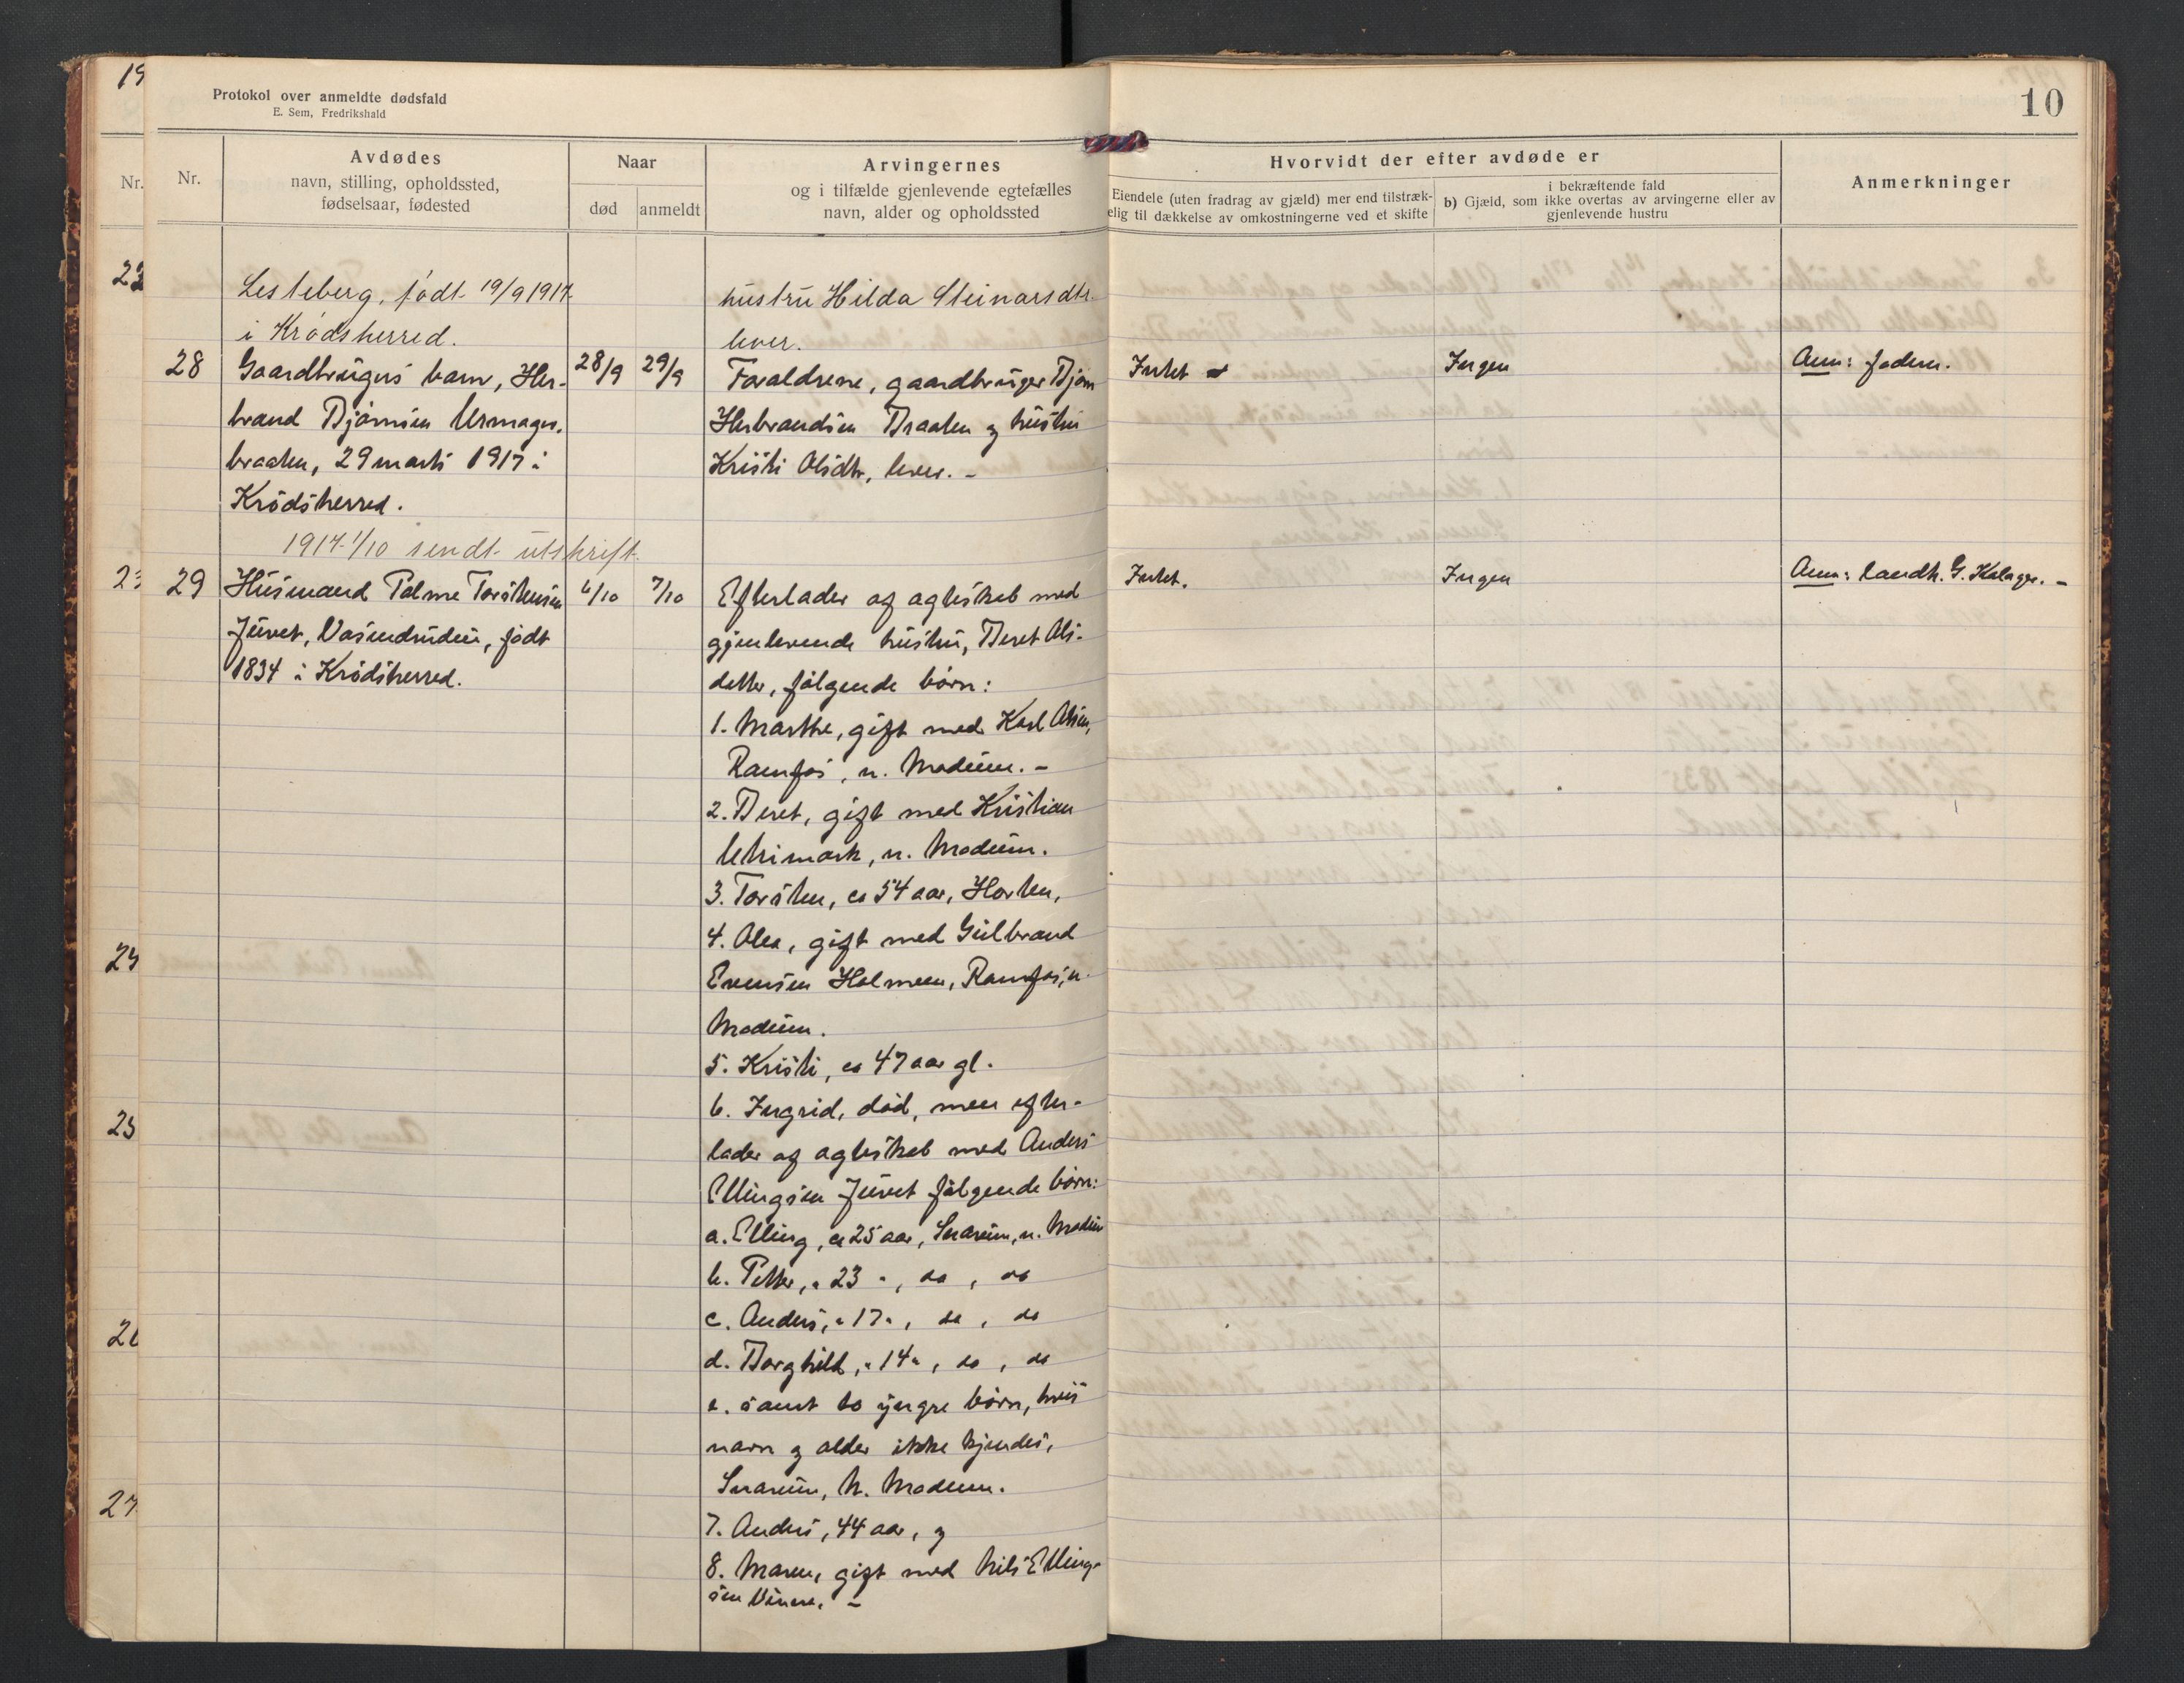 19
10
Protokol over anmeldte dødsfald
E. Sem, Fredrikshald
Nr.
Nr.
Avdødes
navn, stilling, opholdssted,
fødselsaar, fødested
Naar
død
anmeldt
Arvingernes
og i tilfælde gjenlevende egtefælles
navn, alder og opholdssted
Hvorvidt der efter avdøde er
Eiendele (uten fradrag av gjæld) mer end tilstræk-
elig til dækkelse av omkostningerne ved et skifte
i bekræftende fald
b) Gjæld, som ikke overtas av arvingerne eller av
gjenlevende hustru
Anmerkninger
Lesteberg, født 19/9 1917
i Krødsherred.
hustru Hilda Steinarsdtr.
lever.
28
Gaardbrugers barn, Her-
brand Bjørnsen Urmager-
braaten, 29 marts 1917 i
Krødsherred.
28/9
29/9
Forældrene, gaardbruger Bjørn
Herbrandsen Braaten og hustru
Kristi Olsdtr, lever. -
Intet
Ingen
Anm: faderen.
1917 1/10 sendt utskrift.
29
Husmand Palme Torstensen
Juvet, Vasendruden, født
1834 i Krødsherred.
6/10
7/10
Efterlader af agteskab med
gjenlevende hustru, Beret Ols-
datter, følgende børn:
1. Marthe, gift med Karl Olsen,
Ramfos, n. Modum. -
2. Beret, gift med Kristian
n. Modum.
3. Torsten, ca 54 aar, Horten,
4. Olea, gift med Gulbrand
Evensen Holmen, Ramfos, n.
Modum.
5. Kristi, ca 47 aar gl.
6. Ingrid, død, men efter-
lader af agteskab med Anders
Ellingsen Juvet følgende børn:
a. Elling, ca 25 aar, Snarum, n. Modum
b. Petter, " 23 ", do, do
c. Anders, " 17 ", do, do
d. Borghild, " 14 ", do, do
e. samt to yngre børn, hvis
navn og alder ikke kjendes,
Snarum, N. Modum.
7. Anders, 44 aar, og
8. Maren, gift med Nils Elling-
sen
Intet.
Ingen
Anm: landh. G. Kalager. -
23
24
25
27